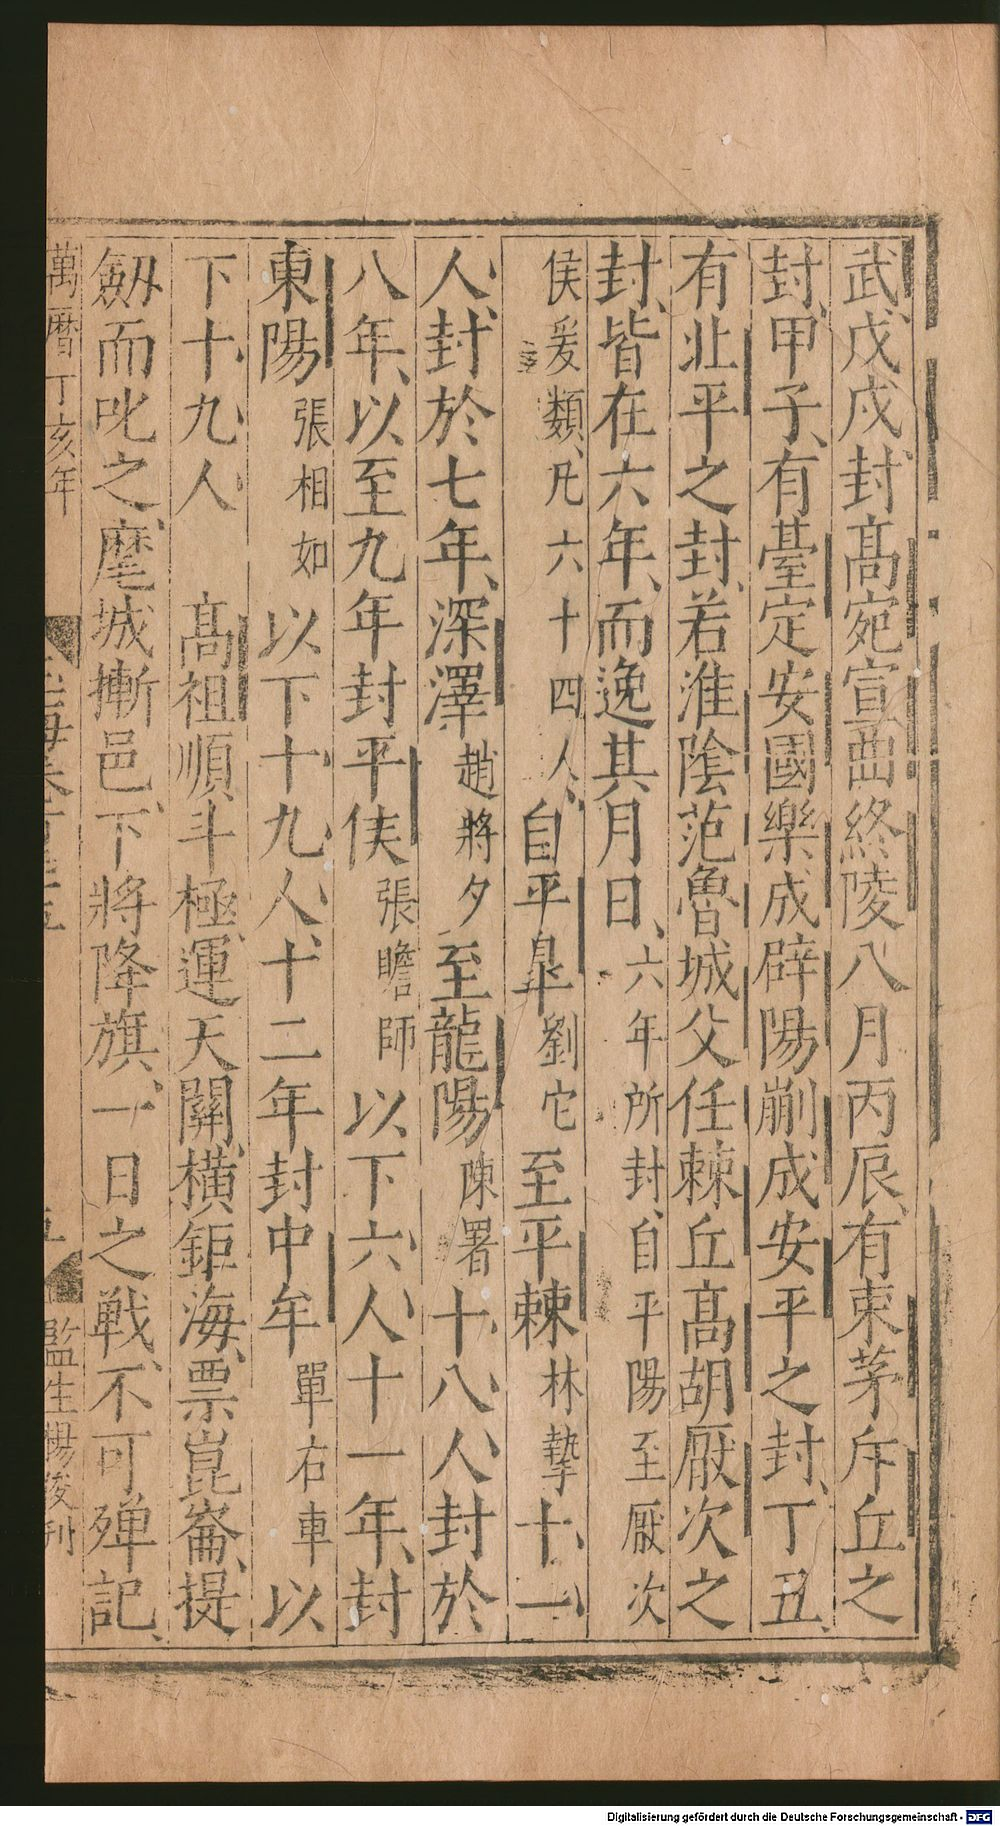 武、戊戌封髙宛宣曲終陵八月丙辰、有東茅斥丘之
封、甲子、有臺定安國樂成辟陽蒯成安平之封、丁丑、
有北平之封、若淮陰范魯城父任棘丘髙胡厭次之
封、皆在六年、而逸其月日、六年所封、自平陽至厭次
侯爰類、凡六十四人、自平臯劉它至平棘林摯十一
人、封於七年、深澤趙將夕至龍陽陳署十八人、封於
八年、以至九年封平侯張瞻師以下六人、十一年、封
東陽張相如以下十九人、十二年封中牟單右車以
下十九人髙祖順斗極、運天關、橫鉅海、票崑崙、提
劔而叱之、麾城摲邑、下將降旗、一日之戰、不可殫記、
萬曆丁亥年
五
監生楊俊刊
Digitalisierung gefördert durch die Deutsche Forschungsgemeinschaft - DFG